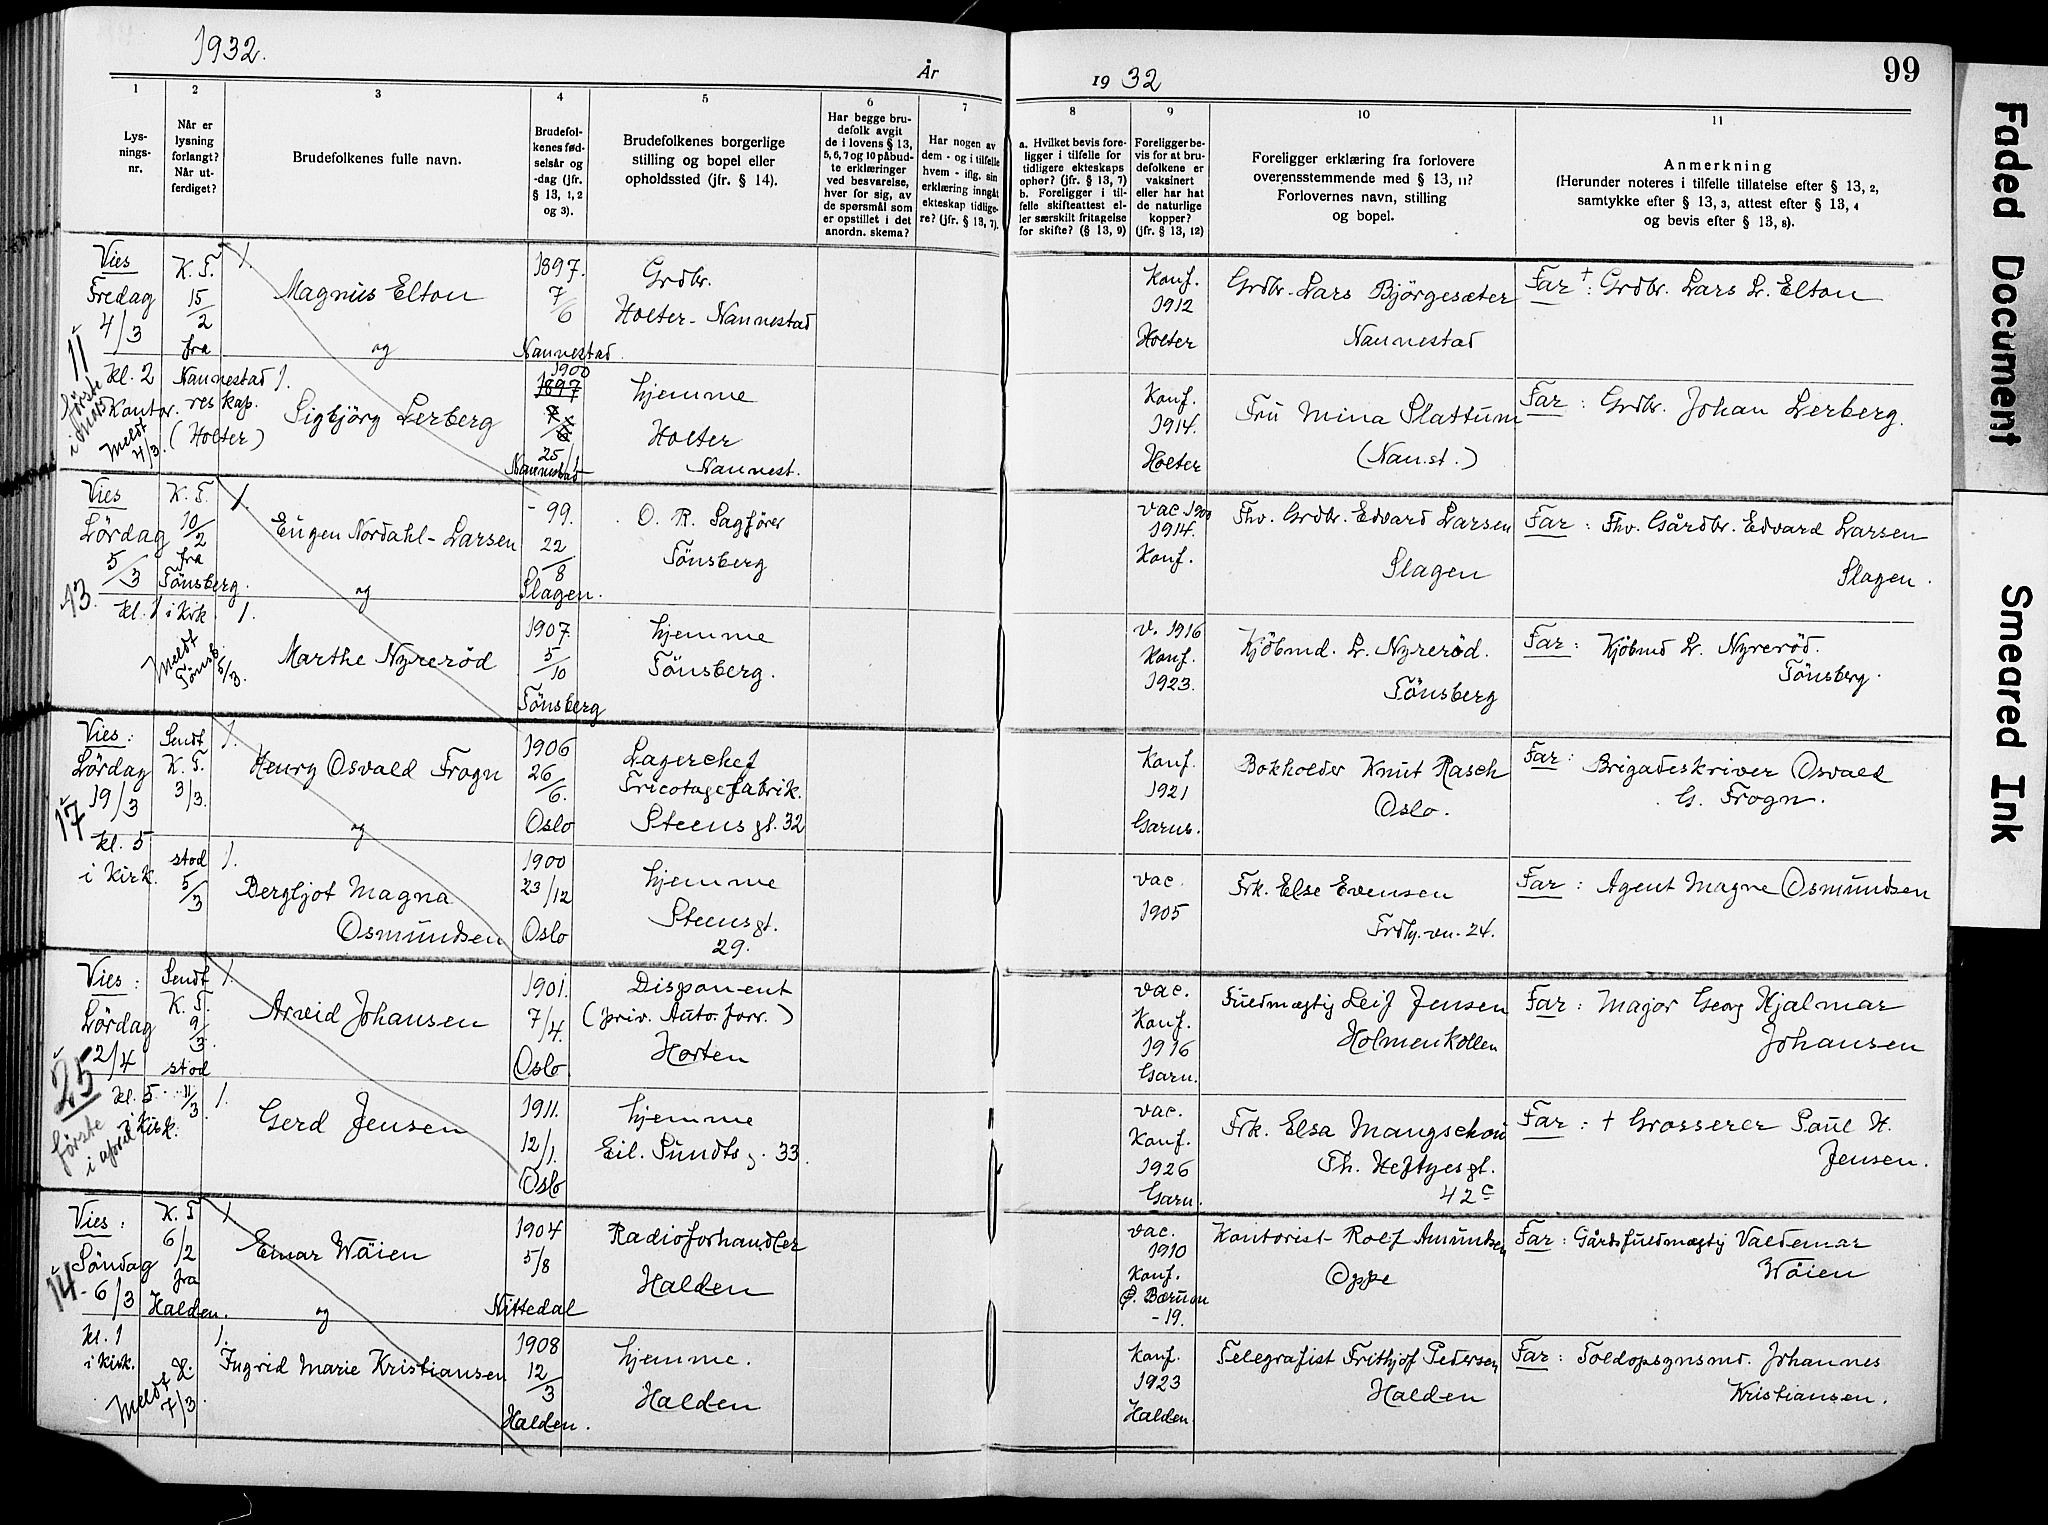 1932.
År
19 32
99
1
2
3
4
5
6
7
8
9
10
11
Lys-
nings-
nr.
Når er
lysning
forlangt?
Når ut-
ferdiget?
Brudefolkenes fulle navn.
Brudefol-
kenes fød-
selsår og
-dag (jfr.
§ 13, 1, 2
og 3).
Brudefolkenes borgerlige
stilling og bopel eller
opholdssted (jfr. § 14).
Har begge bru-
defolk avgit
de i lovens § 13,
5, 6, 7 og 10 påbud-
te erklæringer
ved besvarelse,
hver for sig, av
de spørsmål som
er opstillet i det
anordn. skema?
Har nogen av
dem - og i tilfelle
hvem - iflg. sin
erklæring inngått
ekteskap tidlige-
re? (jfr. § 13, 7).
a. Hvilket bevis fore-
ligger i tilfelle for
tidligere ekteskaps
ophør? (jfr. § 13, 7)
b. Foreligger i til-
felle skifteattest el-
ler særskilt fritagelse
for skifte? (§ 13, 9)
Foreligger be-
vis for at bru-
defolkene er
vaksinert
eller har hat
de naturlige
kopper?
(jfr. § 13, 12)
Foreligger erklæring fra forlovere
overensstemmende med § 13, 11?
Forlovernes navn, stilling
og bopel.
Anmerkning
(Herunder noteres i tilfelle tillatelse efter § 13, 2,
samtykke efter § 13, 3, attest efter § 13, 4
og bevis efter § 13, 8).
Vies
Fredag
4/3
11
kl. 2
Kontor.
første
i mars
Meldt
4/3.
K. T.
15/2
fra
Nannestad
res kap.
(Holter)
1.
Magnus Elton
og
1897.
7/6
Nannestad.
Grdbr.
Holter - Nannestad
Konf.
1912
Holter
Grdbr. Lars Bjørgesæter
Nannestad
Far †: Grdbr. Lars L. Elton
1.
Sigbjörg Lerberg
1900
1897
25/1
Nannestad
hjemme
Holter
Nannest.
Konf.
1914.
Holter
Fru Mina Slattum
(Nan.st.)
Far : Grdbr. Johan Lerberg.
Vies
Lördag
5/3
13.
kl. 1 i Kirk.
Meldt
Tönsb.
5/3.
K. T.
10/2
fra
Tönsberg.
1.
Eugen Nordahl-Larsen
og
- 99.
22/8
Slagen.
O. R. Sagfører
Tönsberg
vac 1900
1914.
Konf.
Fhv. Grdbr. Edvard Larsen
Slagen
Far : Fhv. Gårdbr. Edvard Larsen
Slagen.
1.
Marthe Nyrerød
1907.
5/10
Tönsberg
hjemme
Tönsberg.
v. 1916
Konf.
1923.
Kjöbmd. L. Nyreröd.
Tönsberg
Far : Kjöbmd L. Nyreröd.
Tönsberg.
Vies :
Lördag
19/3
17
kl. 5
i Kirk.
Sendt
K. T.
3/3.
stod
5/3
1.
Henry Osvald Frogn
og
1906
26/6.
Oslo
Lagerchef
Tricotagefabrik.
Steens gt. 32
Konf.
1921
Garns.
Bokholder Knut Rasch
Oslo.
Far : Brigadeskriver Osvald
G. Frogn.
1.
Bergljot Magna
Osmundsen
1900
23/12
Oslo
hjemme
Steensgt.
29.
vac.
1905
Frk. Else Evensen
Frdh. vn. 24.
Far : Agent Magne Osmundsen
Vies :
Lördag
2/4
25
kl. 5
i Kirk.
første
i april
Sendt
K. T.
9/3.
stod
11/3
1.
Arvid Johansen
1901.
7/4.
Oslo.
Disponent
(priv. Auto. forr.)
Horten
vac.
Konf.
1916
Garn.
Fuldmægtig Leif Jensen
Holmenkollen
Far : Major Georg Hjalmar
Johansen
1.
Gerd Jensen
1911.
12/1.
Oslo
hjemme
Eil. Sundts g. 33.
vac.
Konf.
1926
Garn.
Frk. Elsa Mangschou
Th. Heftyesgt.
42 c
Far : † Grosserer Paul H.
Jensen.
Vies :
Söndag
- 6/3
14
kl. 1
i Kirk.
K. T
6/2
fra
Halden.
Meldt H.
7/3.
1
Einar Wöien
og
1904
5/8
Nittedal
Radioforhandler
Halden
vac.
1910
Konf.
Ø. Bærum
- 19.
Kontorist Rolf Amundsen
Oppe
Far : Gårdsfuldmægtig Valdemar
Wöien
1.
Ingrid Marie Kristiansen
1908
12/3
Halden.
hjemme.
Halden
Konf.
1923
Halden
Telegrafist Frithjof Pedersen
Halden
Far : Toldopsynsmd. Johannes
Kristiansen.
Faded Document
Smeared Ink